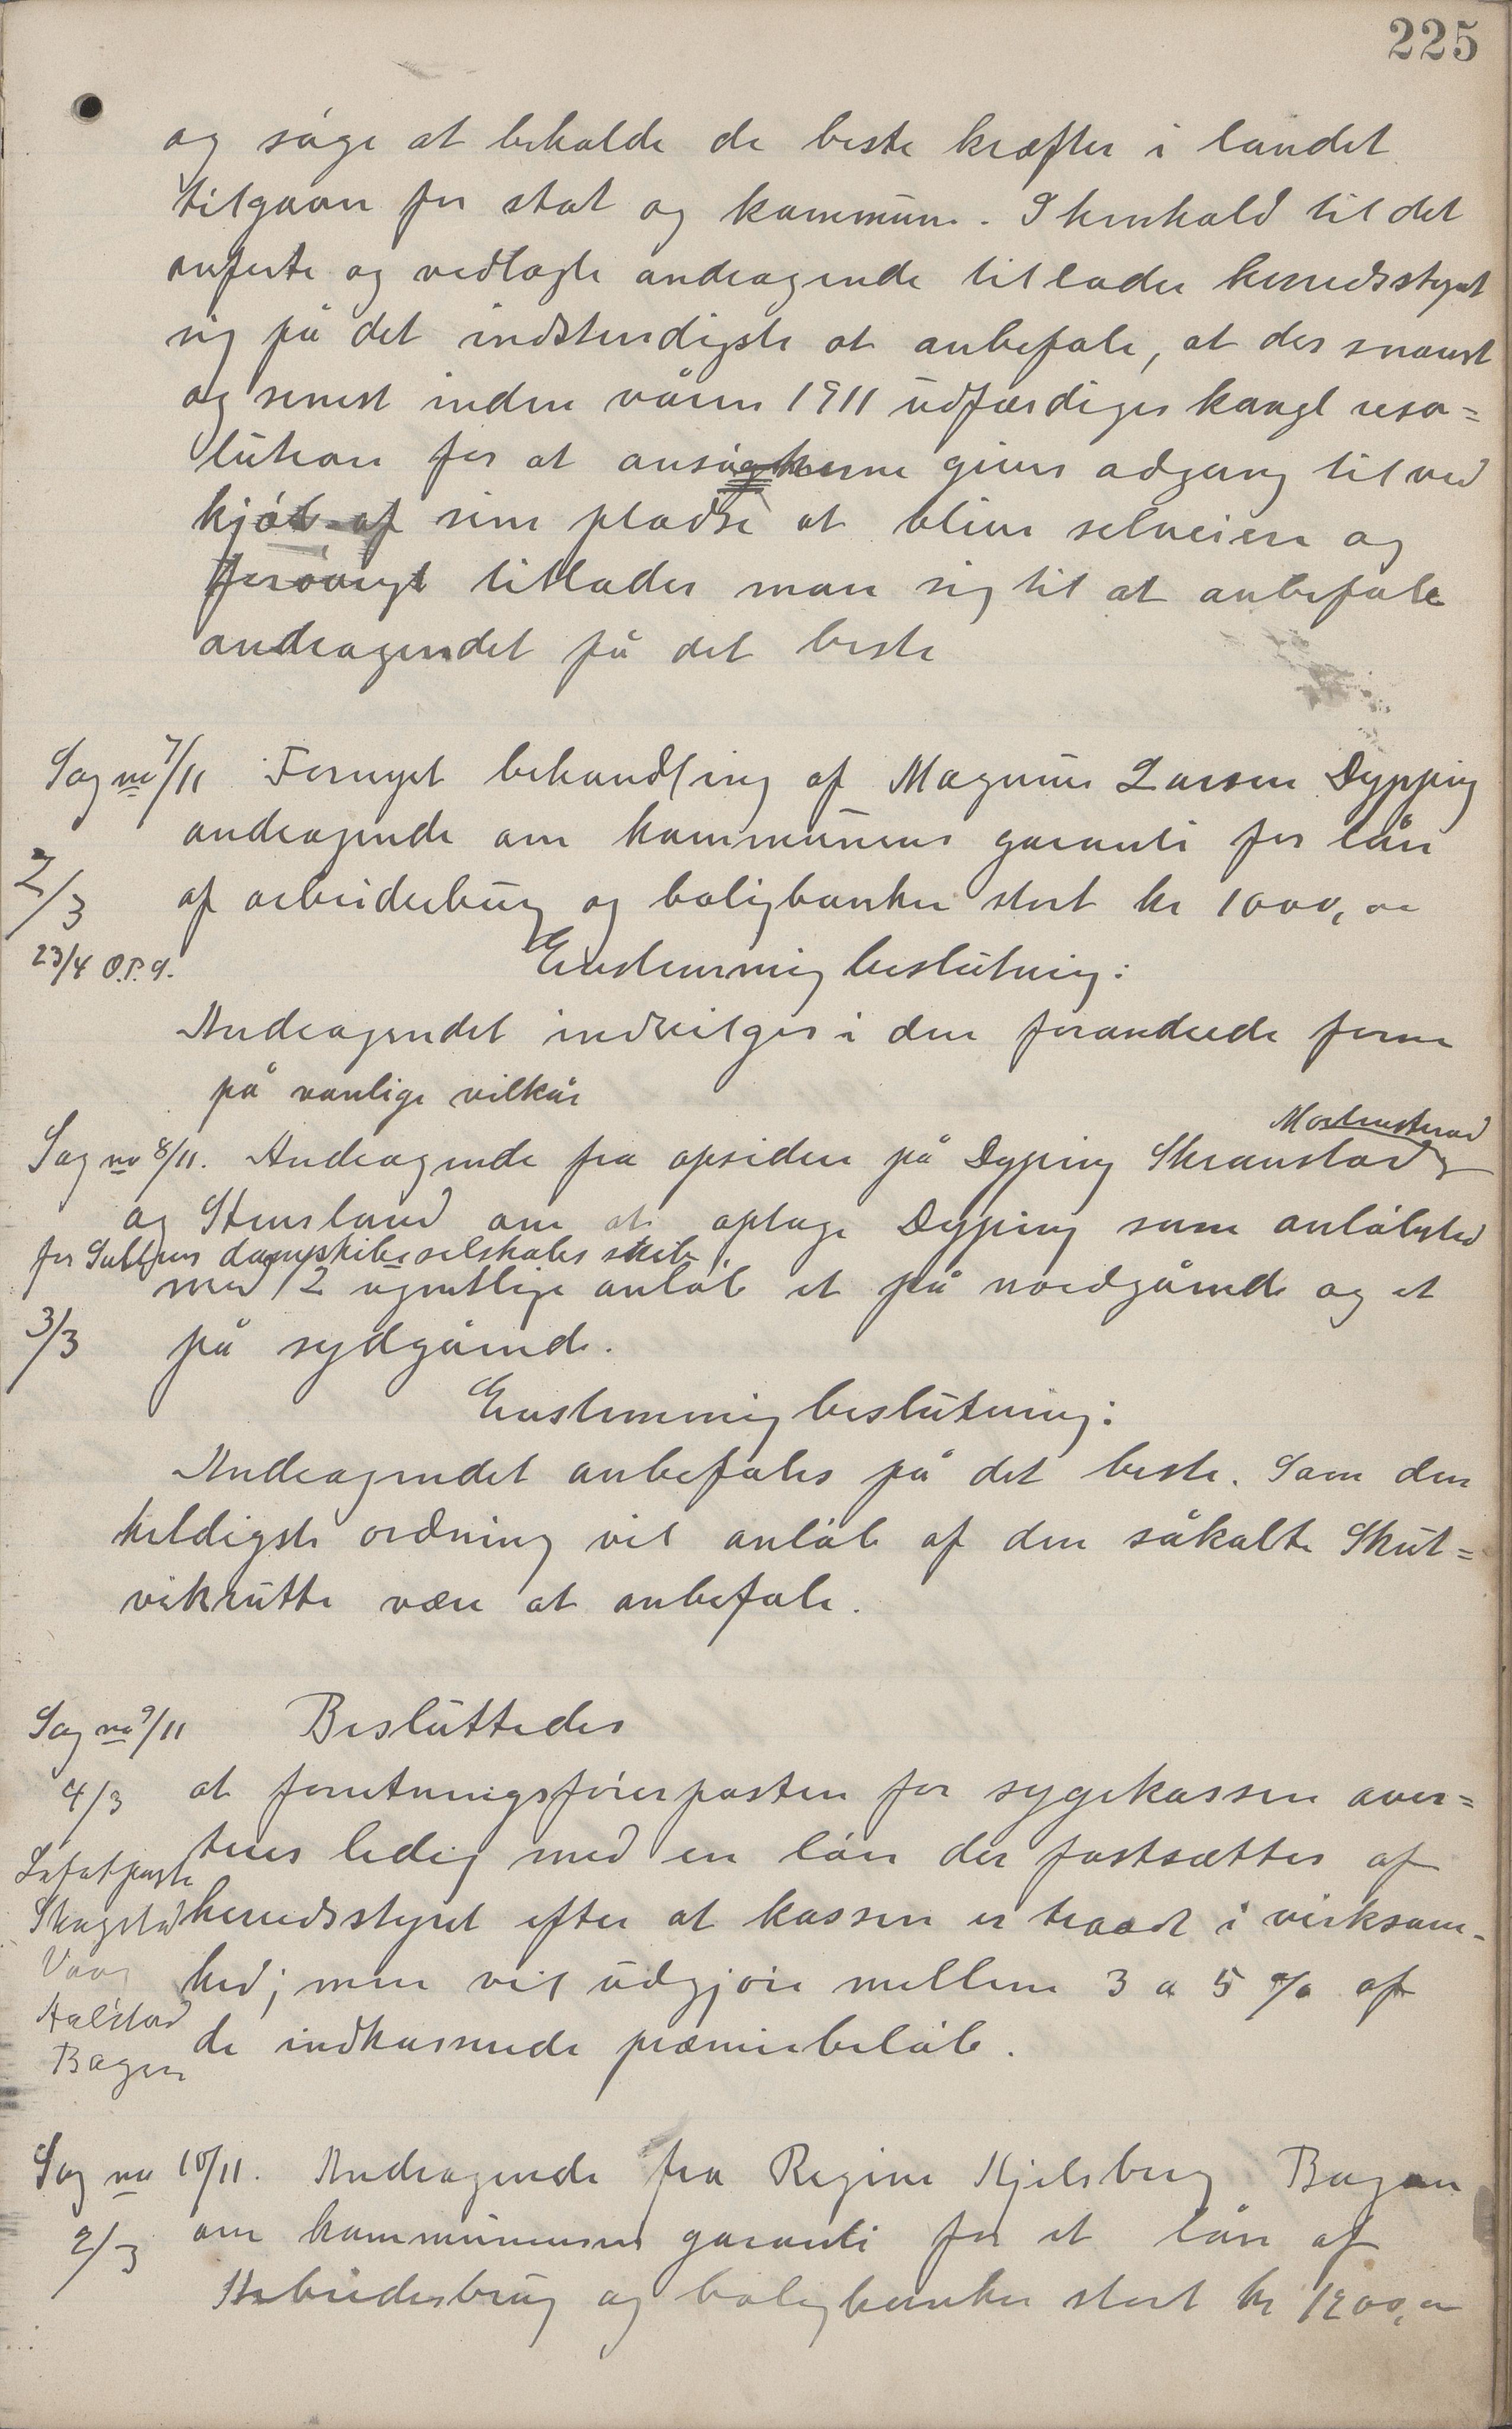 225
og søge at beholde de beste kræfter i landet
til gavn for stat og kommune. I henhold til det
anførte og vedlagte andragende tillader herredsstyret
sig på det indstendigste at anbefale, at der snarest
og senest inden våren 1911 udfærdiges kongl reso=
lution for at ansøgerne gives adgang til ved
kjøb af sine pladse at blive selveiere og
forøvrigt tillader man sig til at anbefale
andragendet på det beste
Sag no 7/11 Fornyet behandling af Magnus Larsen Dypping
andragende om kommunens garanti for lån
2/3 af arbeiderbrug og boligbanken stort kr 1000,00
23/4 O.P.9. Enstemmig beslutning:
Andragendet indvilges i den forandrede form
på vanlige vilkår
Mortensterad
Sag no 8/11. Andragende fra opsidere på Dyping Skranstad
og Stensland om at optage Dyping som anløbssted
for Saltens dampskibsselskabs skibe
med 2 ugentlige anløb et på nordgående og et
3/3 på sydgående.
Enstemmig beslutning:
Andragendet anbefales på det beste. Som den
heldigste ordning vil anløb af den såkalte Skut=
vikrutte være at anbefale.
Sag no 9/11 Besluttedes
4/3 at forretningsførerposten for sygekassen aver=
teres ledig med en løn der fastsættes af
Lofotposten
Skagstad herredsstyret efter at kassen er traadt i virksom-
Vaag hed; men vil udgjøre mellem 3 a 5 % af
Helstad
Bogen de indkasserede præmiebeløb.
Sag no 10/11. Andragende fra Regine Kjelsberg Bogen
2/3 om kommunens garanti for et lån af
Arbeiderbrug og boligbanken stort kr 1200,00